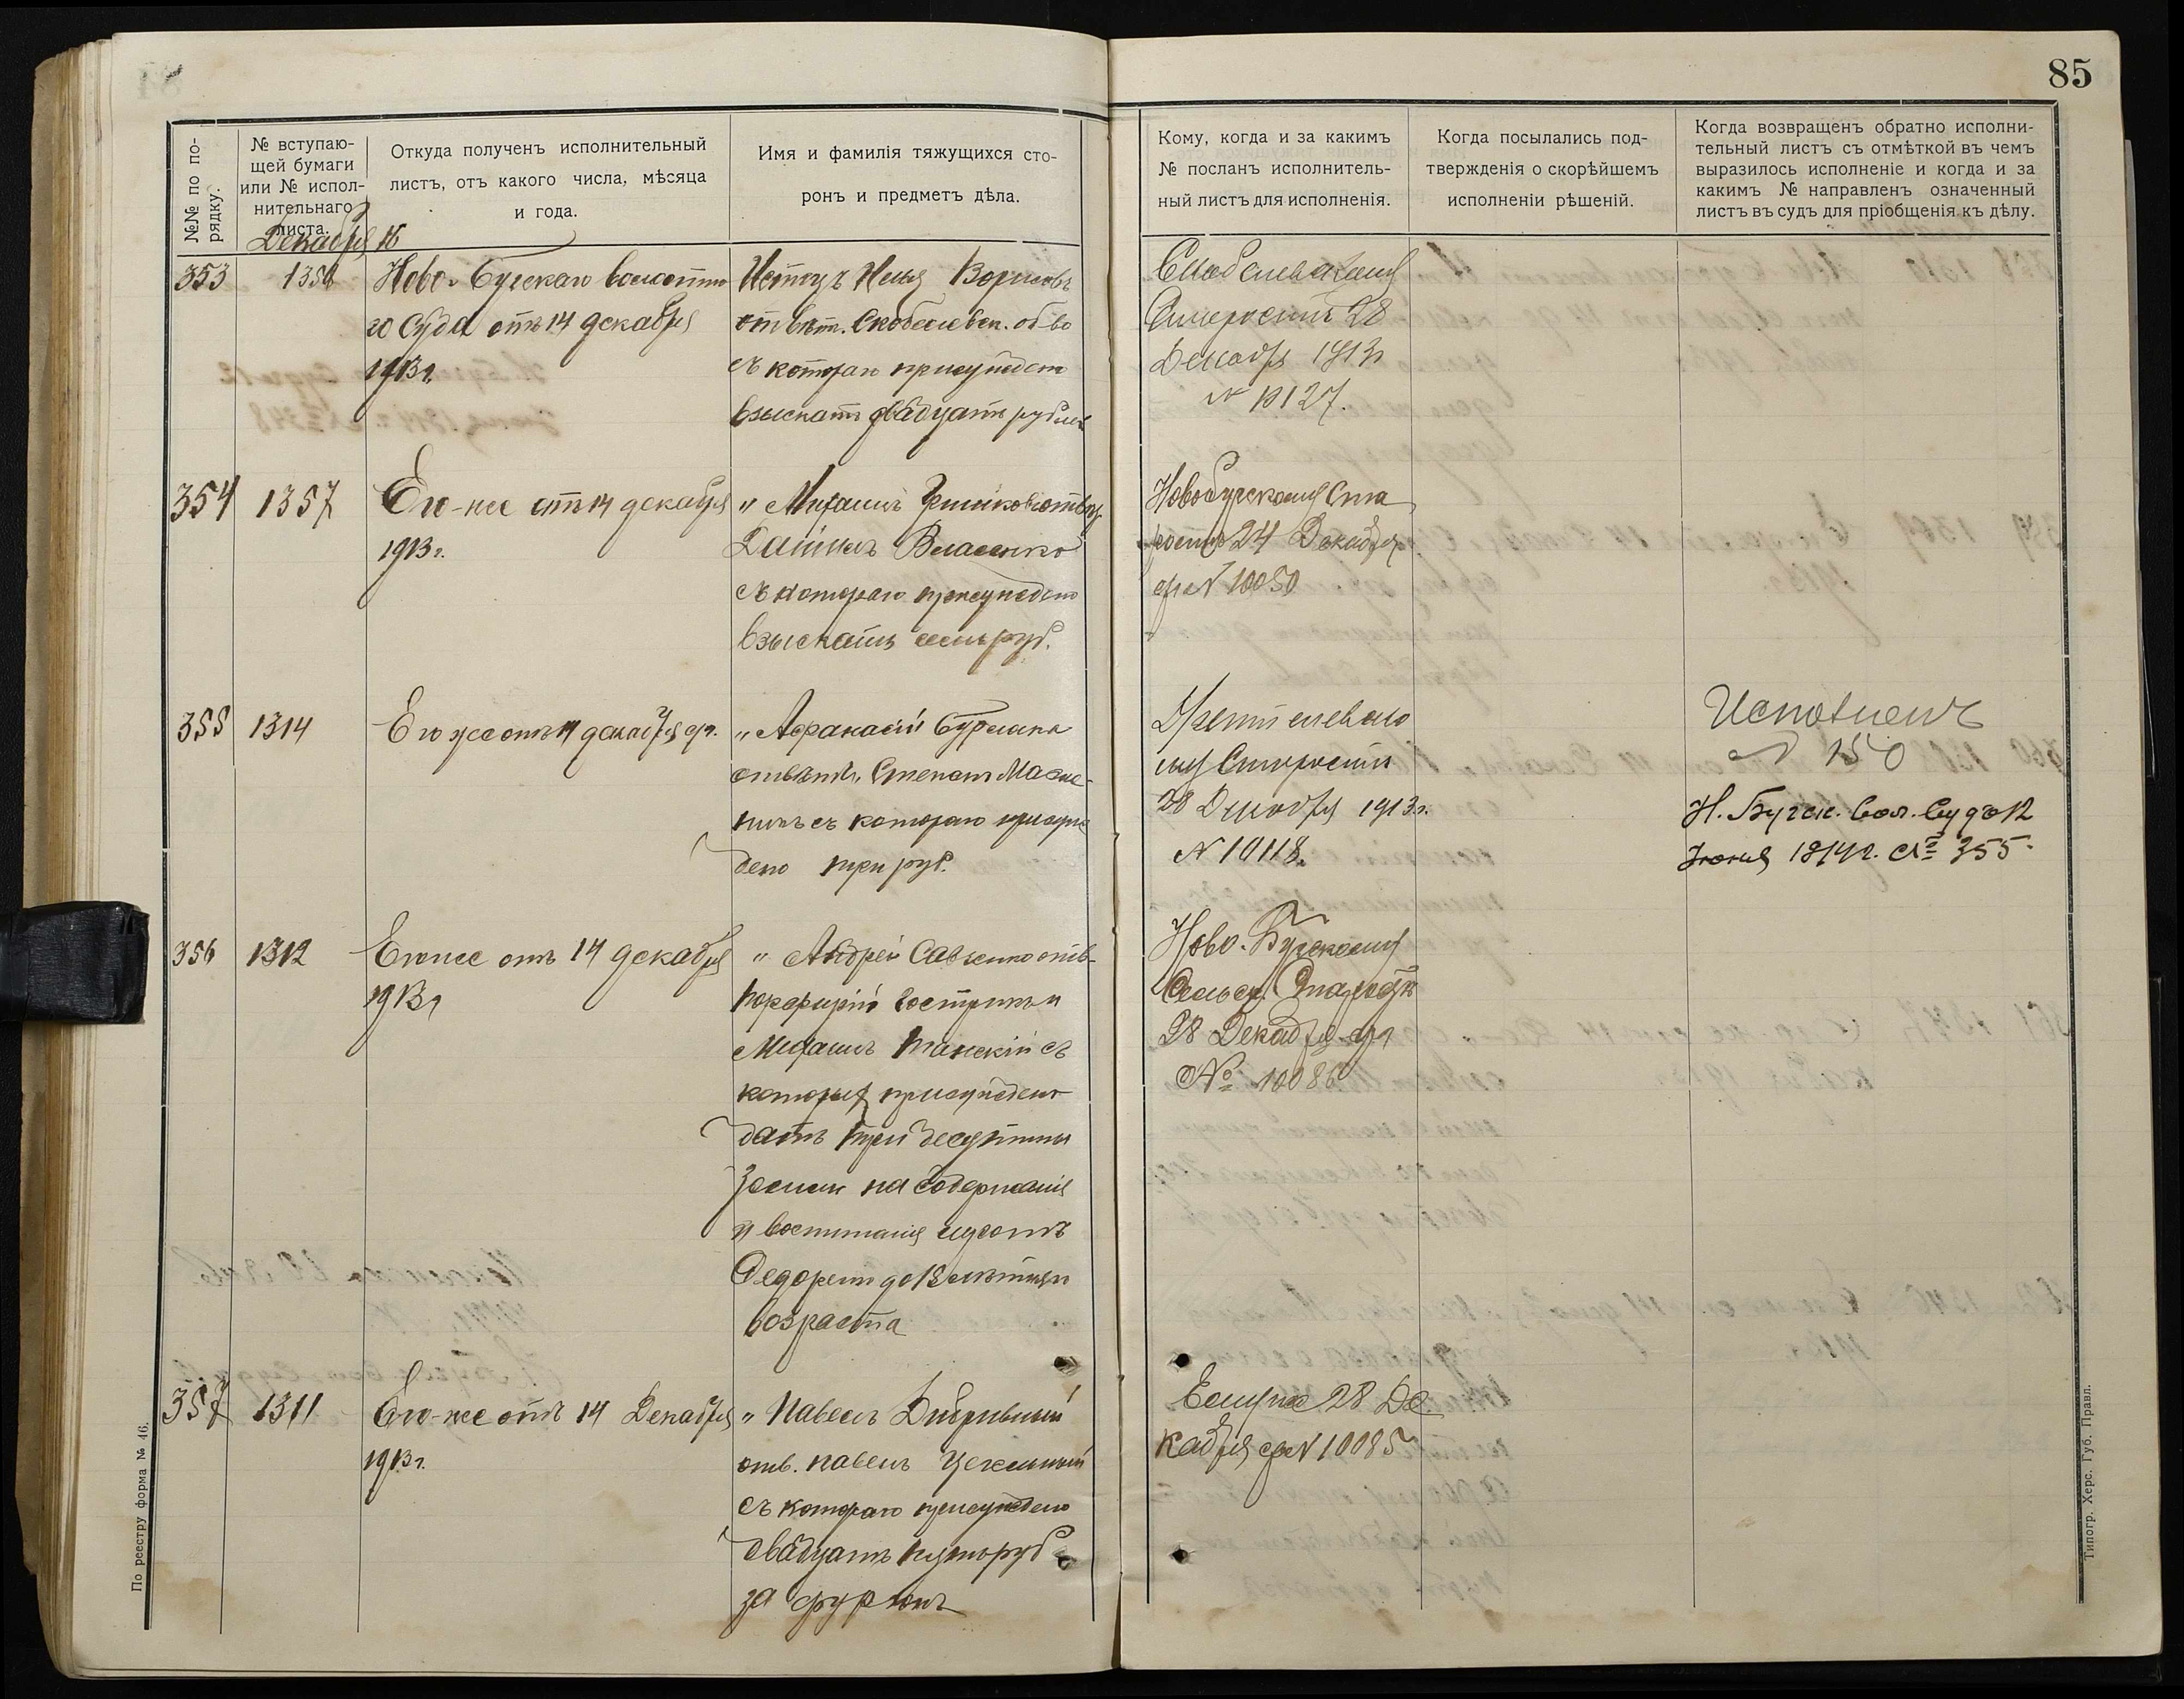 85
№№ по по-
рядку.
№ вступаю-
щей бумаги
или № испол-
нительнаго
листа.
Откуда полученъ исполнительный
листъ, отъ какого числа, мѣсяца
и года.
Имя и фамилія тяжущихся сто-
ронъ и предметъ дѣла.
Кому, когда и за какимъ
№ посланъ исполнитель-
ный листъ для исполненія.
Когда посылались под-
твержденія о скорѣйшемъ
исполненіи рѣшеній.
Когда возвращенъ обратно исполни-
тельный листъ съ отмѣткой въ чемъ
выразилось исполненіе и когда и за
какимъ № направленъ означенный
листъ въ судъ для пріобщенія къ дѣлу.
Декабря 16
353
Ново-Бугскаго волостно
го Суда отъ 14 декабря
1913 г.
Истцъ Илья Борисовъ
отвѣт. Скобелевск. об-во
съ котораго присуждено
взыскать двадцать рублей
Скобелевскому
Старостѣ 28
Декабря 1913 г
№ 10127.
354
1357
Его-же отъ 14 декабря
1913 г.
" Михаилъ
Даніилъ Власенко
съ котораго присуждено
взыскать семь руб.
Новобугскому Ста
ростѣ 24 Декабря
с/г № 10050
355
1314
Его же отъ 14 декабря с/г.
" Афанасій Бурлака
отвѣтч. Степанъ
съ котораго присуж
дено три руб.
Старостѣ
28 Декабря 1913 г.
№ 10118.
Исполненъ
№ 150
Н. Бугск. Вол. Судъ 12
Іюня 1914 г. № 355.
356
1312
Его же отъ 14 декабря
1913 г
" Андрей Савченко отв-
Порфирій и
Михаилъ съ
которыхъ присуждено
дать три десятины
земли на содержанія
и воспитанія
до 18 лѣтняго
возраста
Ново-Бугскому
Сельск. Старостѣ
28 Декабря с/г
№ 10086
357
1311
Его-же отъ 14 Декабря
1913 г.
" Павелъ
отв. Павелъ
съ котораго присуждено
двадцать пять руб
за фургонъ
Ему же 28 Де
кабря с/г № 10085
По реестру форма № 46.
Типогр. Херс. Губ. Правл.